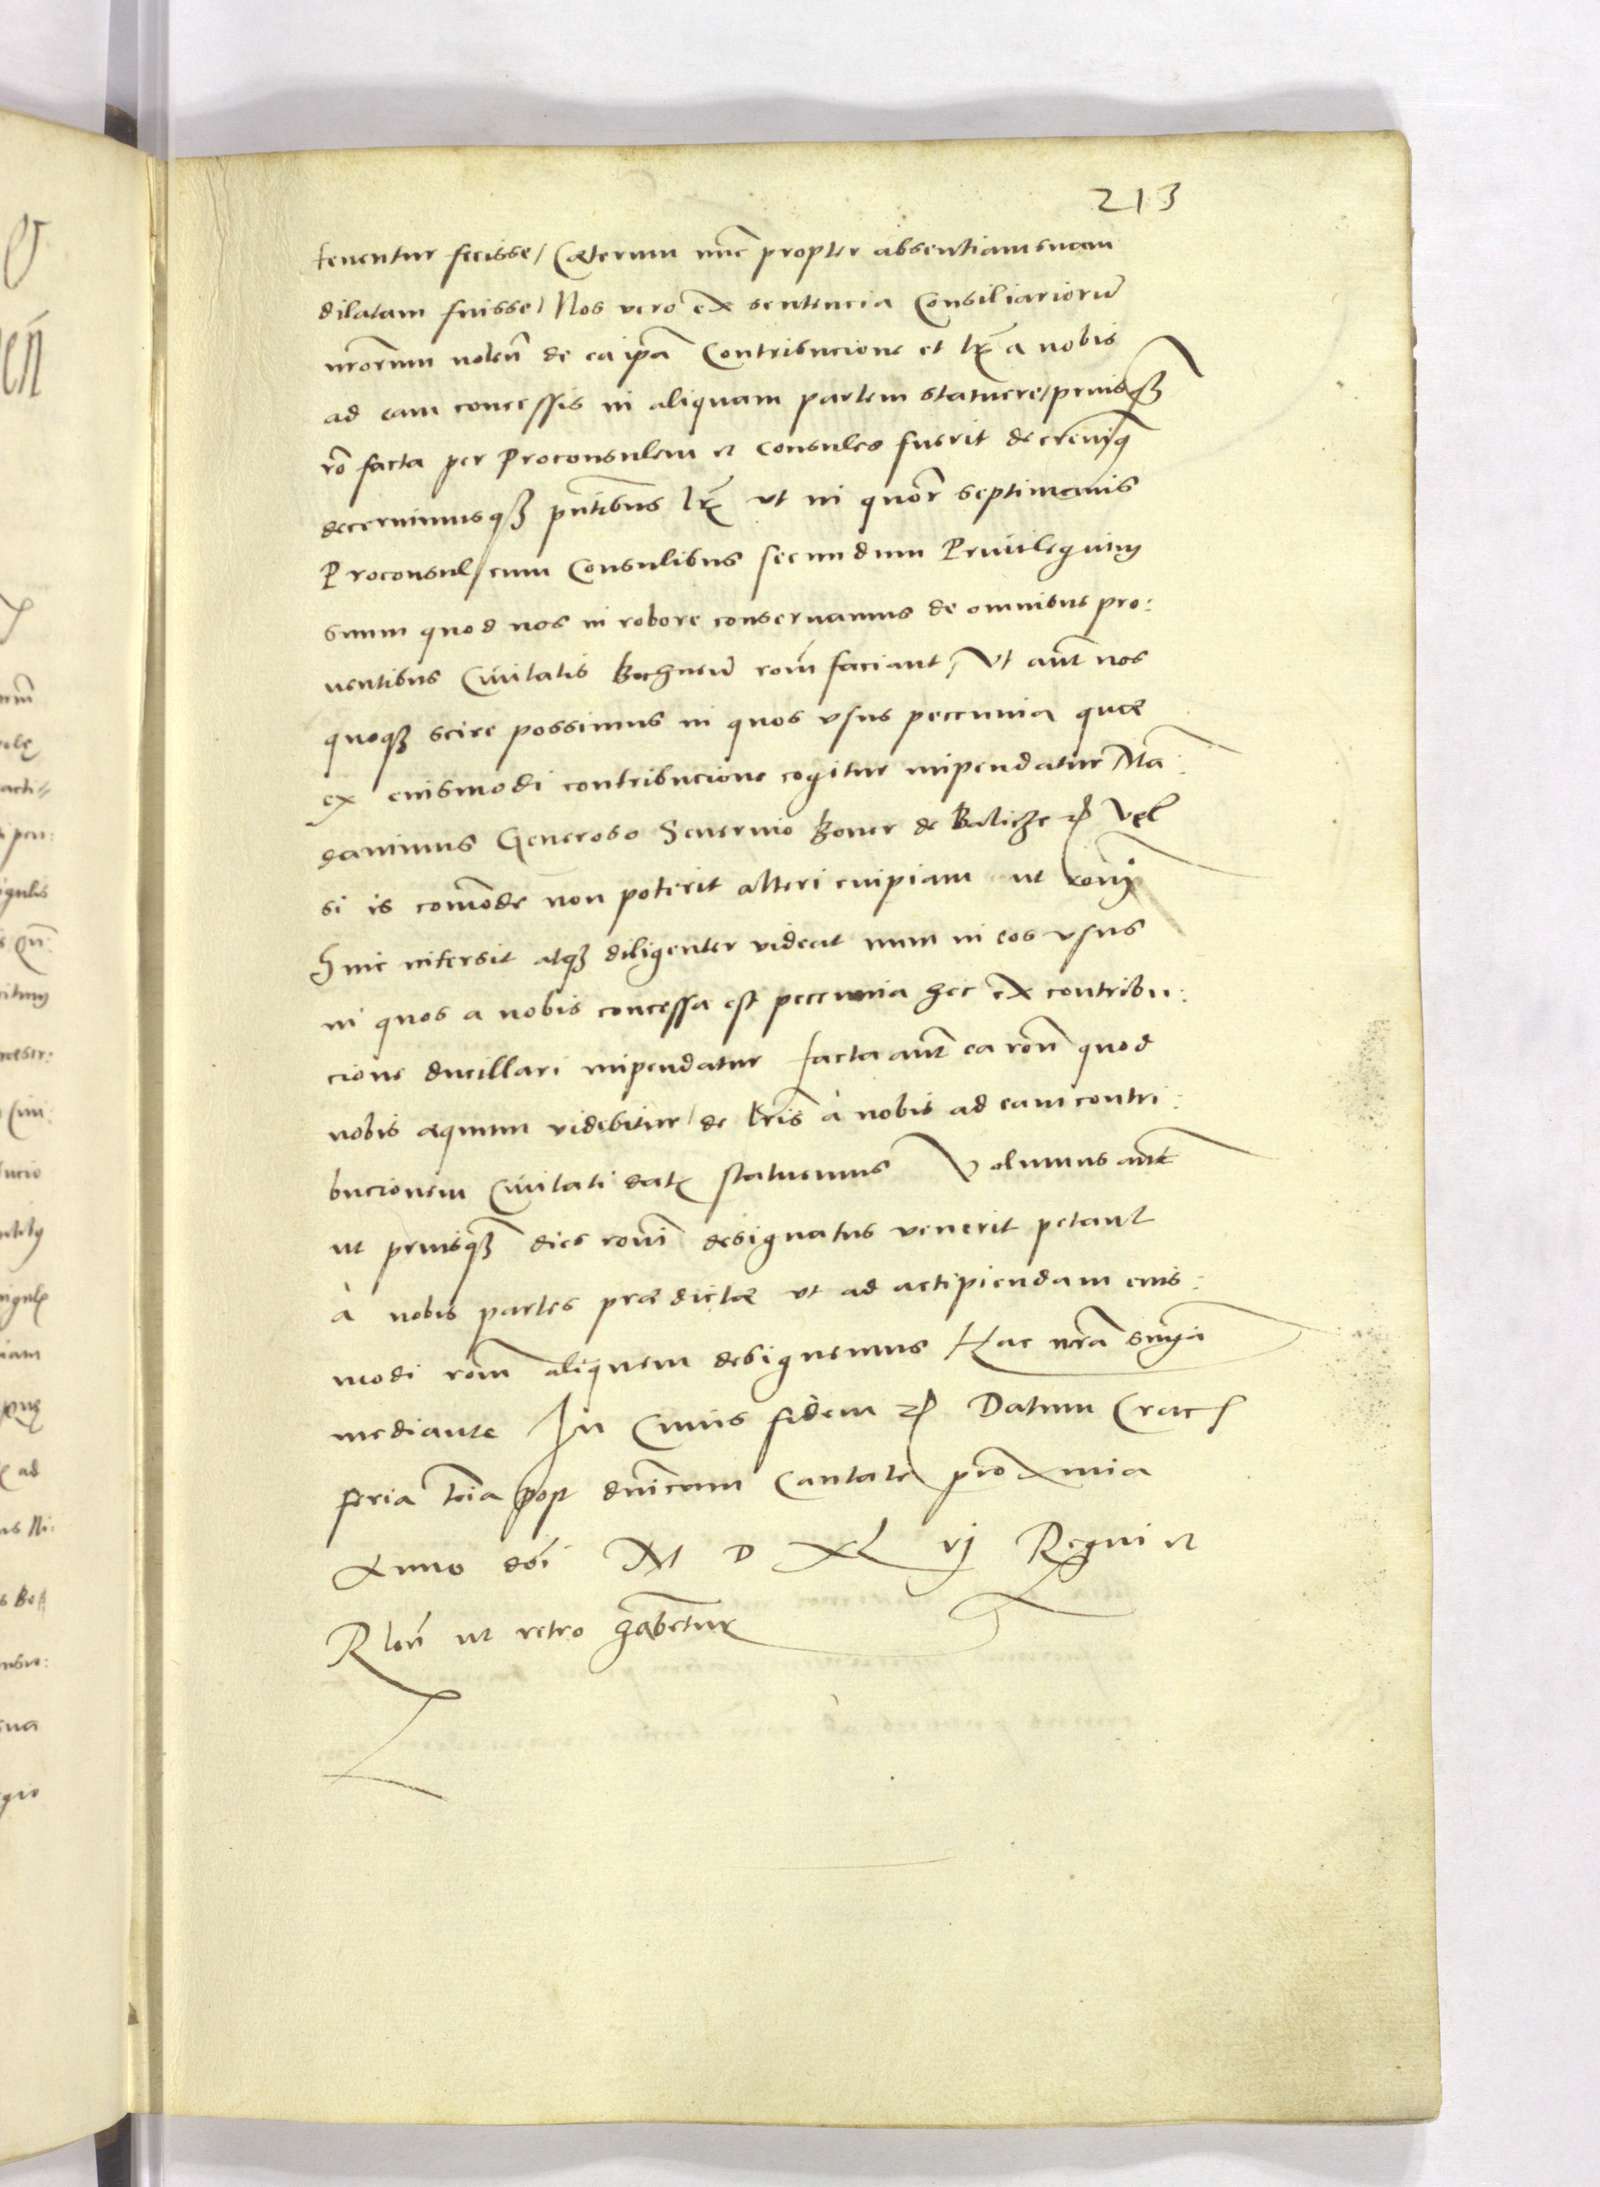 213
tenentur fecisse / Cæterum nūc propter absentiam suam
dilatam fuisse / Nos vero ex sentencia Consiliariorū
nrorum nolen̄ de ea ip̄a Contribucione et lr̄is a nobis
ad eam concessis in aliquam partem statuere / priusq̄ꝫ
rō facta per Proconsulem et Consules fuerit decrevim̄q
decernimusqꝫ pn̄tibus lr̄is ut in quatuor septimanis
Proconsul cum Consulibus secundum Privilegium
suum quod nos in robore conservamus de omnibus pro:
ventibus Civitatis Bochnen̄ rōm faciant / Ut aūt nos
quoqꝫ scire possimus in quos usus peccunia quæ
ex eiusmodi contribucione cogitur impendatur Mā:
damus Generoso Severino Boner de Balicze etc Vel
si is comōde non poterit alteri cuipiam ut rōni
huic intersit atqꝫ diligenter videat num in eos usus
in quos a nobis concessa est peccunia hec ex contribu:
cione ducillari impendatur facta aūt ea rōn̄ quod
nobis æquum videbitur / de lr̄is à nobis ad eam contri:
bucionem Civitati datis statuemus Volumus aūt
ut priusq̄ꝫ dies rōni designatus venerit petant
à nobis partes prædictæ ut ad accipiendam eius:
modi rōm aliquem designemus Hac nr̄a sn̄ia
mediante In Cuius fidem etc Datum Crac
feria tc̄ia post dn̄icam Cantate proxima
Anno dn̄i M D XL vj Regni et
Rlōn̄ ut retro habetur